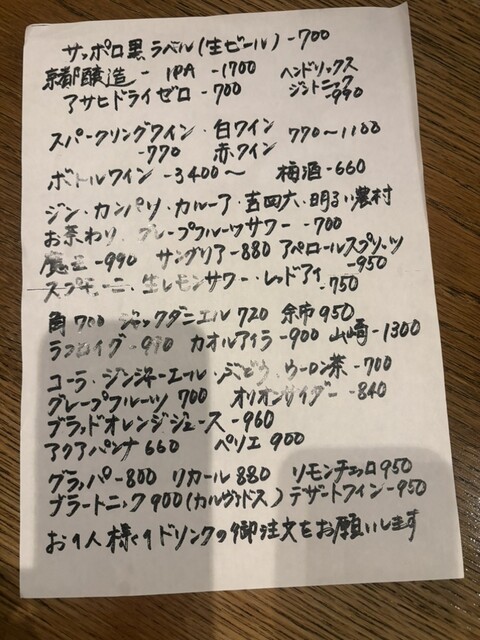 サッポロ黒ラベル(生ビール)-700
京都醸造- IPA -1700 ヘンドリックス
アサヒドライゼロ-700 ジントニック
-990
スパークリングワイン・白ワイン 770〜1100
-770 赤ワイン
ボトルワイン-3400〜 梅酒-660
ジン・カンパリ・カルーア・吉四六・明るい農村
お茶わり、グレープフルーツサワー -700
魔王-990 サングリア-880 アペロールスプリッツ
-950
スプモーニ、生レモンサワー・レッドアイ
750
角700 ジャックダニエル 720 余市950
ラフロイグ-990 カオルアイラ-900 山崎-1300
コーラ・ジンジャーエール・ぶどう・ウーロン茶-700
グレープフルーツ 700 オリオンサイダー-840
ブラッドオレンジジュース-960
アクアパンナ660 ペリエ 900
グラッパ-800 リカール880 リモンチェッロ950
ブラートニック900(カルヴァドス) デザートワイン-950
お1人様1ドリンクの御注文をお願いします